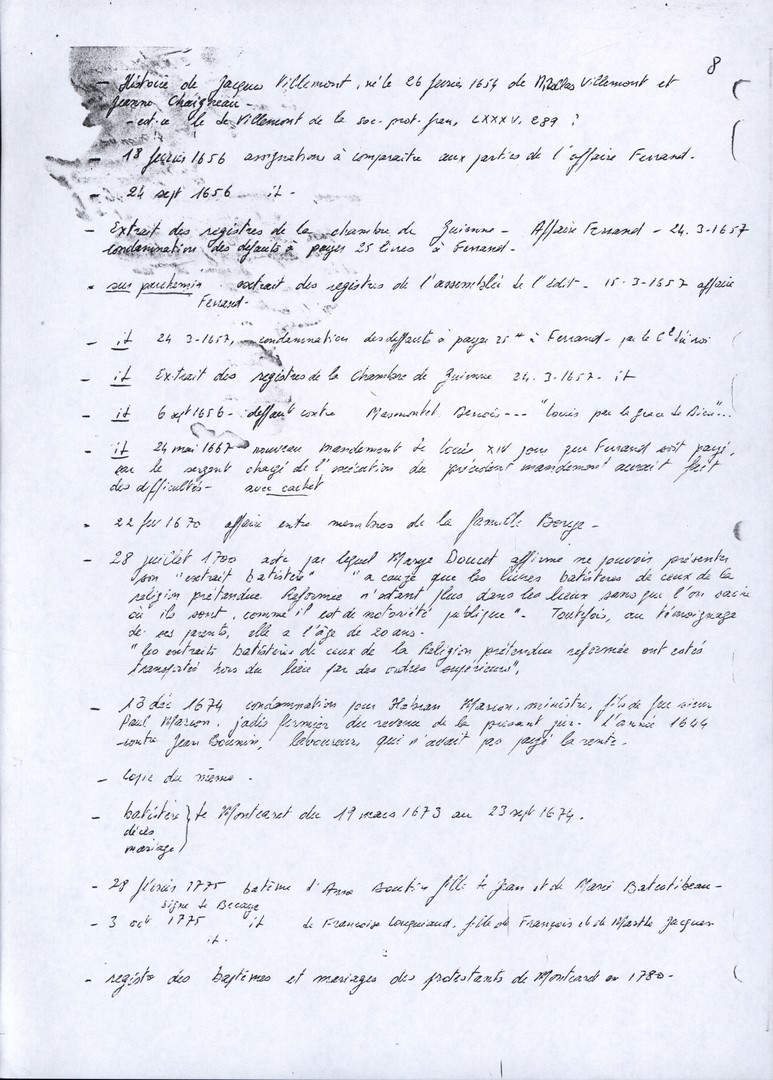 8
- Histoire de Jacques Villemont, né le 26 février 1654 de Nicolas Villemont et
Jeanne Chaigneau -
- est-ce le de Villemont de la soc. prot. fran, LXXXV, 289 ?
- 18 février 1656 assignations à comparaitre aux parties de l'affaire Ferrand.
- 24 sept 1656 it -
- Extrait des registres de la chambre de Guienne - Affaire Ferrand - 24. 3-1657
condamnation des défauts à payer 25 livres à Ferrand -
- sur parchemin extrait des registres de l'assemblée de l'édit - 15-3-1657 affaire
Ferrand.
- it 24 3-1657, condamnation des deffauts à payer 25 à Ferrand - par le du roi
- it Extrait des registres de la Chambre de Guienne 24. 3-1657 - it
- it 6 sept 1656 - deffaut contre Benois --- "Louis par la grace de Dieu"...
- it 24 mai 1667 - nouveau mandement de Louis XIV pour que Ferrand soit payé,
car le sergent chargé de l'exécution du précédent mandement aurait fait
des difficultés - avec cachet
- 22 fev 1670 affaire entre membres de la famille Berge -
- 28 juillet 1700 acte par lequel Marye Doucet affirme ne pouvoir présenter
son "extrait batistère" "a cauze que les livres batistères de ceux de la
religion prétendue Réformée n'estant plus dans les lieux sans que l'on sache
où ils sont, comme il est de notoriété publique". Toutefois, au témoignage
de ses parents, elle a l'âge de 20 ans.
"les extraits batistères de ceux de la Religion prétendue reformée ont estés
transportés hors du lieu par des ordres supérieurs",
- 13 déc 1674 condamnation pour Marion, ministre, fils de feu sieur
Paul Marion, jadis fermier du revenu de la l'année 1644
contre Jean Bounin, laboureur qui n'avait pas payé la rente.
- Copie du même.
- batistère
décès
mariage } de Montcaret du 19 mars 1673 au 23 sept 1674.
- 28 février 1775 batême d'Anne Boutin fille de Jean et de Marie
signe de Becaye
- 3 oct 1775 it de Francoise fille de François et de Marthe Jacques
it.
- registre des baptêmes et mariages des protestants de Montcaret en 1780 -